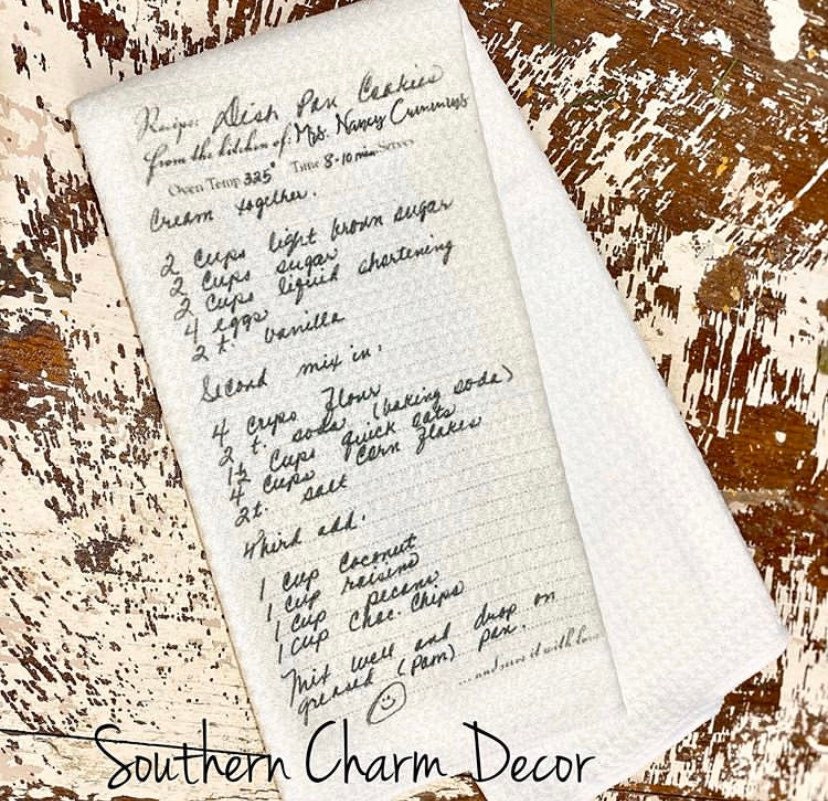 Recipe: Dish Pan Cookies
from the kitchen of: Mrs. Nancy Cummins
Oven Temp 325° Time 8-10 min Serves
Cream together.
2 cups light brown sugar
2 cups sugar
2 cups liquid shortening
4 eggs
2 t. vanilla
Second mix in:
4 cups flour
2 t. soda (baking soda)
1½ cups quick oats
4 cups corn flakes
2t. salt
Third add.
1 cup coconut
1 cup raisins
1 cup pecans
1 cup choc. chips
Mix well and drop on
greased (pam) pan.
...and serve it with love
Southern Charm Decor